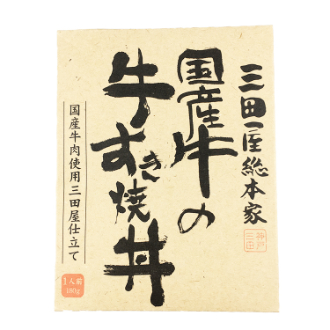 三田屋総本家
神戸
三田
国産牛の
牛すき焼丼
国産牛肉使用三田屋仕立て
1人前
180g